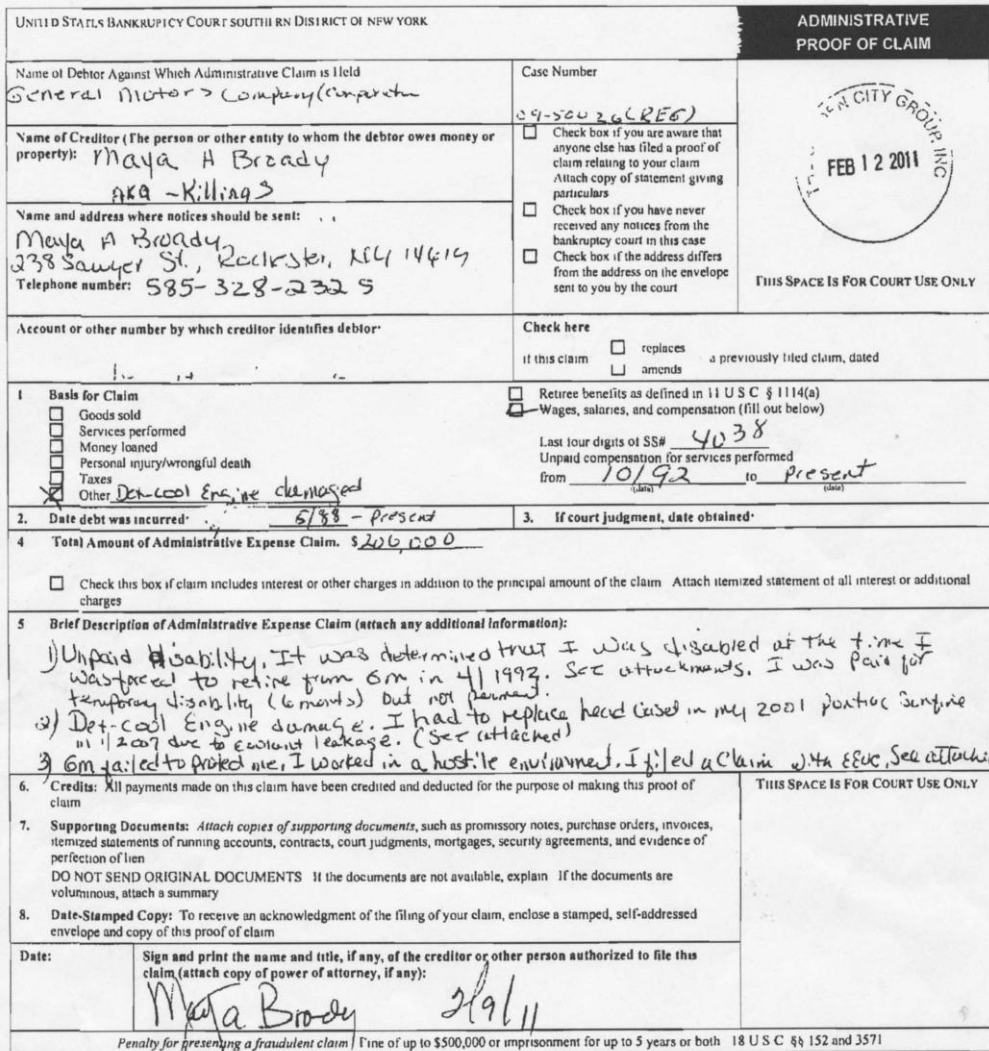 UNITED STATES BANKRUPTCY COURT SOUTHERN DISTRICT OF NEW YORK
ADMINISTRATIVE
PROOF OF CLAIM
Name of Debtor Against Which Administrative Claim is Held
General Motors Company (
Case Number
(REG)
Name of Creditor (The person or other entity to whom the debtor owes money or
property): Maya A Broady
AKA - Killings
Check box if you are aware that
anyone else has filed a proof of
claim relating to your claim
Attach copy of statement giving
particulars
Check box if you have never
received any notices from the
bankruptcy court in this case
Check box if the address differs
from the address on the envelope
sent to you by the court
CITY GROUP, INC
FEB 12 2011
THIS SPACE IS FOR COURT USE ONLY
Name and address where notices should be sent:
Maya A Broady
238 Sawyer St., Rochester, NY 14619
Telephone number: 585-328-2325
Account or other number by which creditor identifies debtor
Check here
if this claim
replaces
amends
a previously filed claim, dated
1 Basis for Claim
Goods sold
Services performed
Money loaned
Personal injury/wrongful death
Taxes
Other Det-cool Engine damaged
Retiree benefits as defined in 11 U S C § 1114(a)
Wages, salaries, and compensation (fill out below)
Last four digits of SS# 4038
Unpaid compensation for services performed
from 10/92 to Present
(date) (date)
2. Date debt was incurred 5/88 - Present
3. If court judgment, date obtained
4 Total Amount of Administrative Expense Claim. $ 200,000
Check this box if claim includes interest or other charges in addition to the principal amount of the claim Attach itemized statement of all interest or additional
charges
5 Brief Description of Administrative Expense Claim (attach any additional information):
1) Unpaid Disability. It was determined that I was disabled at the time I
was forced to retire from GM in 4/1992. See attachments. I was Paid for
temporary disability (6 months) but not
2) Det-cool Engine damage. I had to replace head in my 2001 Pontiac Sunfire
in 1/2007 due to coolant leakage. (See attached)
3) GM failed to protect me, I worked in a hostile enviroment. I filed a Claim with EEOC, See
6. Credits: All payments made on this claim have been credited and deducted for the purpose of making this proof of
claim
THIS SPACE IS FOR COURT USE ONLY
7. Supporting Documents: Attach copies of supporting documents, such as promissory notes, purchase orders, invoices,
itemized statements of running accounts, contracts, court judgments, mortgages, security agreements, and evidence of
perfection of lien
DO NOT SEND ORIGINAL DOCUMENTS If the documents are not available, explain If the documents are
voluminous, attach a summary
8. Date-Stamped Copy: To receive an acknowledgment of the filing of your claim, enclose a stamped, self-addressed
envelope and copy of this proof of claim
Date:
Sign and print the name and title, if any, of the creditor or other person authorized to file this
claim (attach copy of power of attorney, if any):
Maya Broady 2/9/11
Penalty for presenting a fraudulent claim Fine of up to $500,000 or imprisonment for up to 5 years or both 18 U S C §§ 152 and 3571